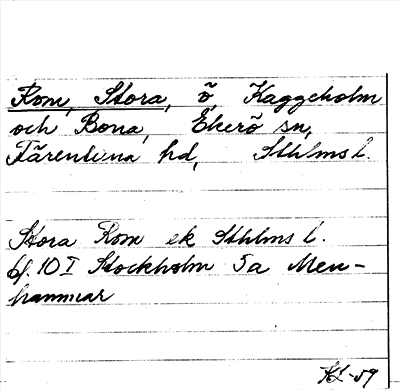 Rom, Stora, ö, Kaggeholm
och Bona, Ekerö sn,
Färentuna hd, Sthlms l.
Stora Rom ek Sthlms l.
bl. 10 I Stockholm 5a Men-
hammar
-59